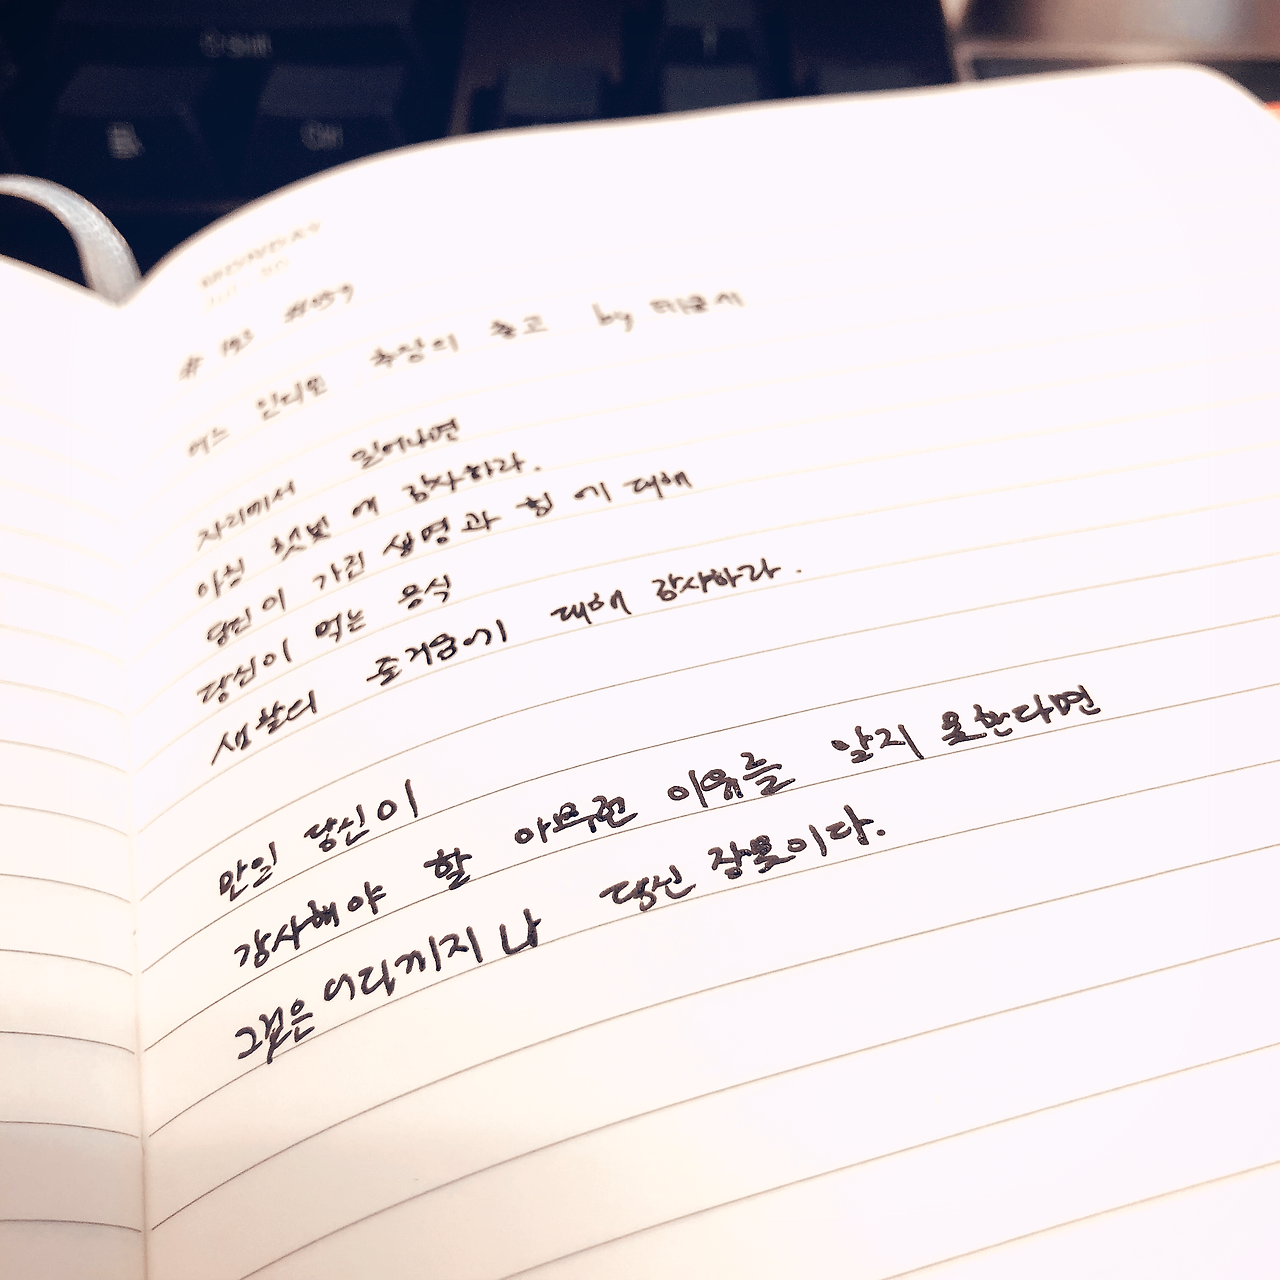 어느 인디언 추장의 충고 by 테쿰세
자리에서 일어나면
아침 햇빛에 감사하라.
당신이 가진 생명과 힘에 대해
당신이 먹는 음식
생활의 즐거움에 대해 감사하라.
만일 당신이
감사해야 할 아무런 이유를 알지 못한다면
그것은 어디까지나 당신 잘못이다.